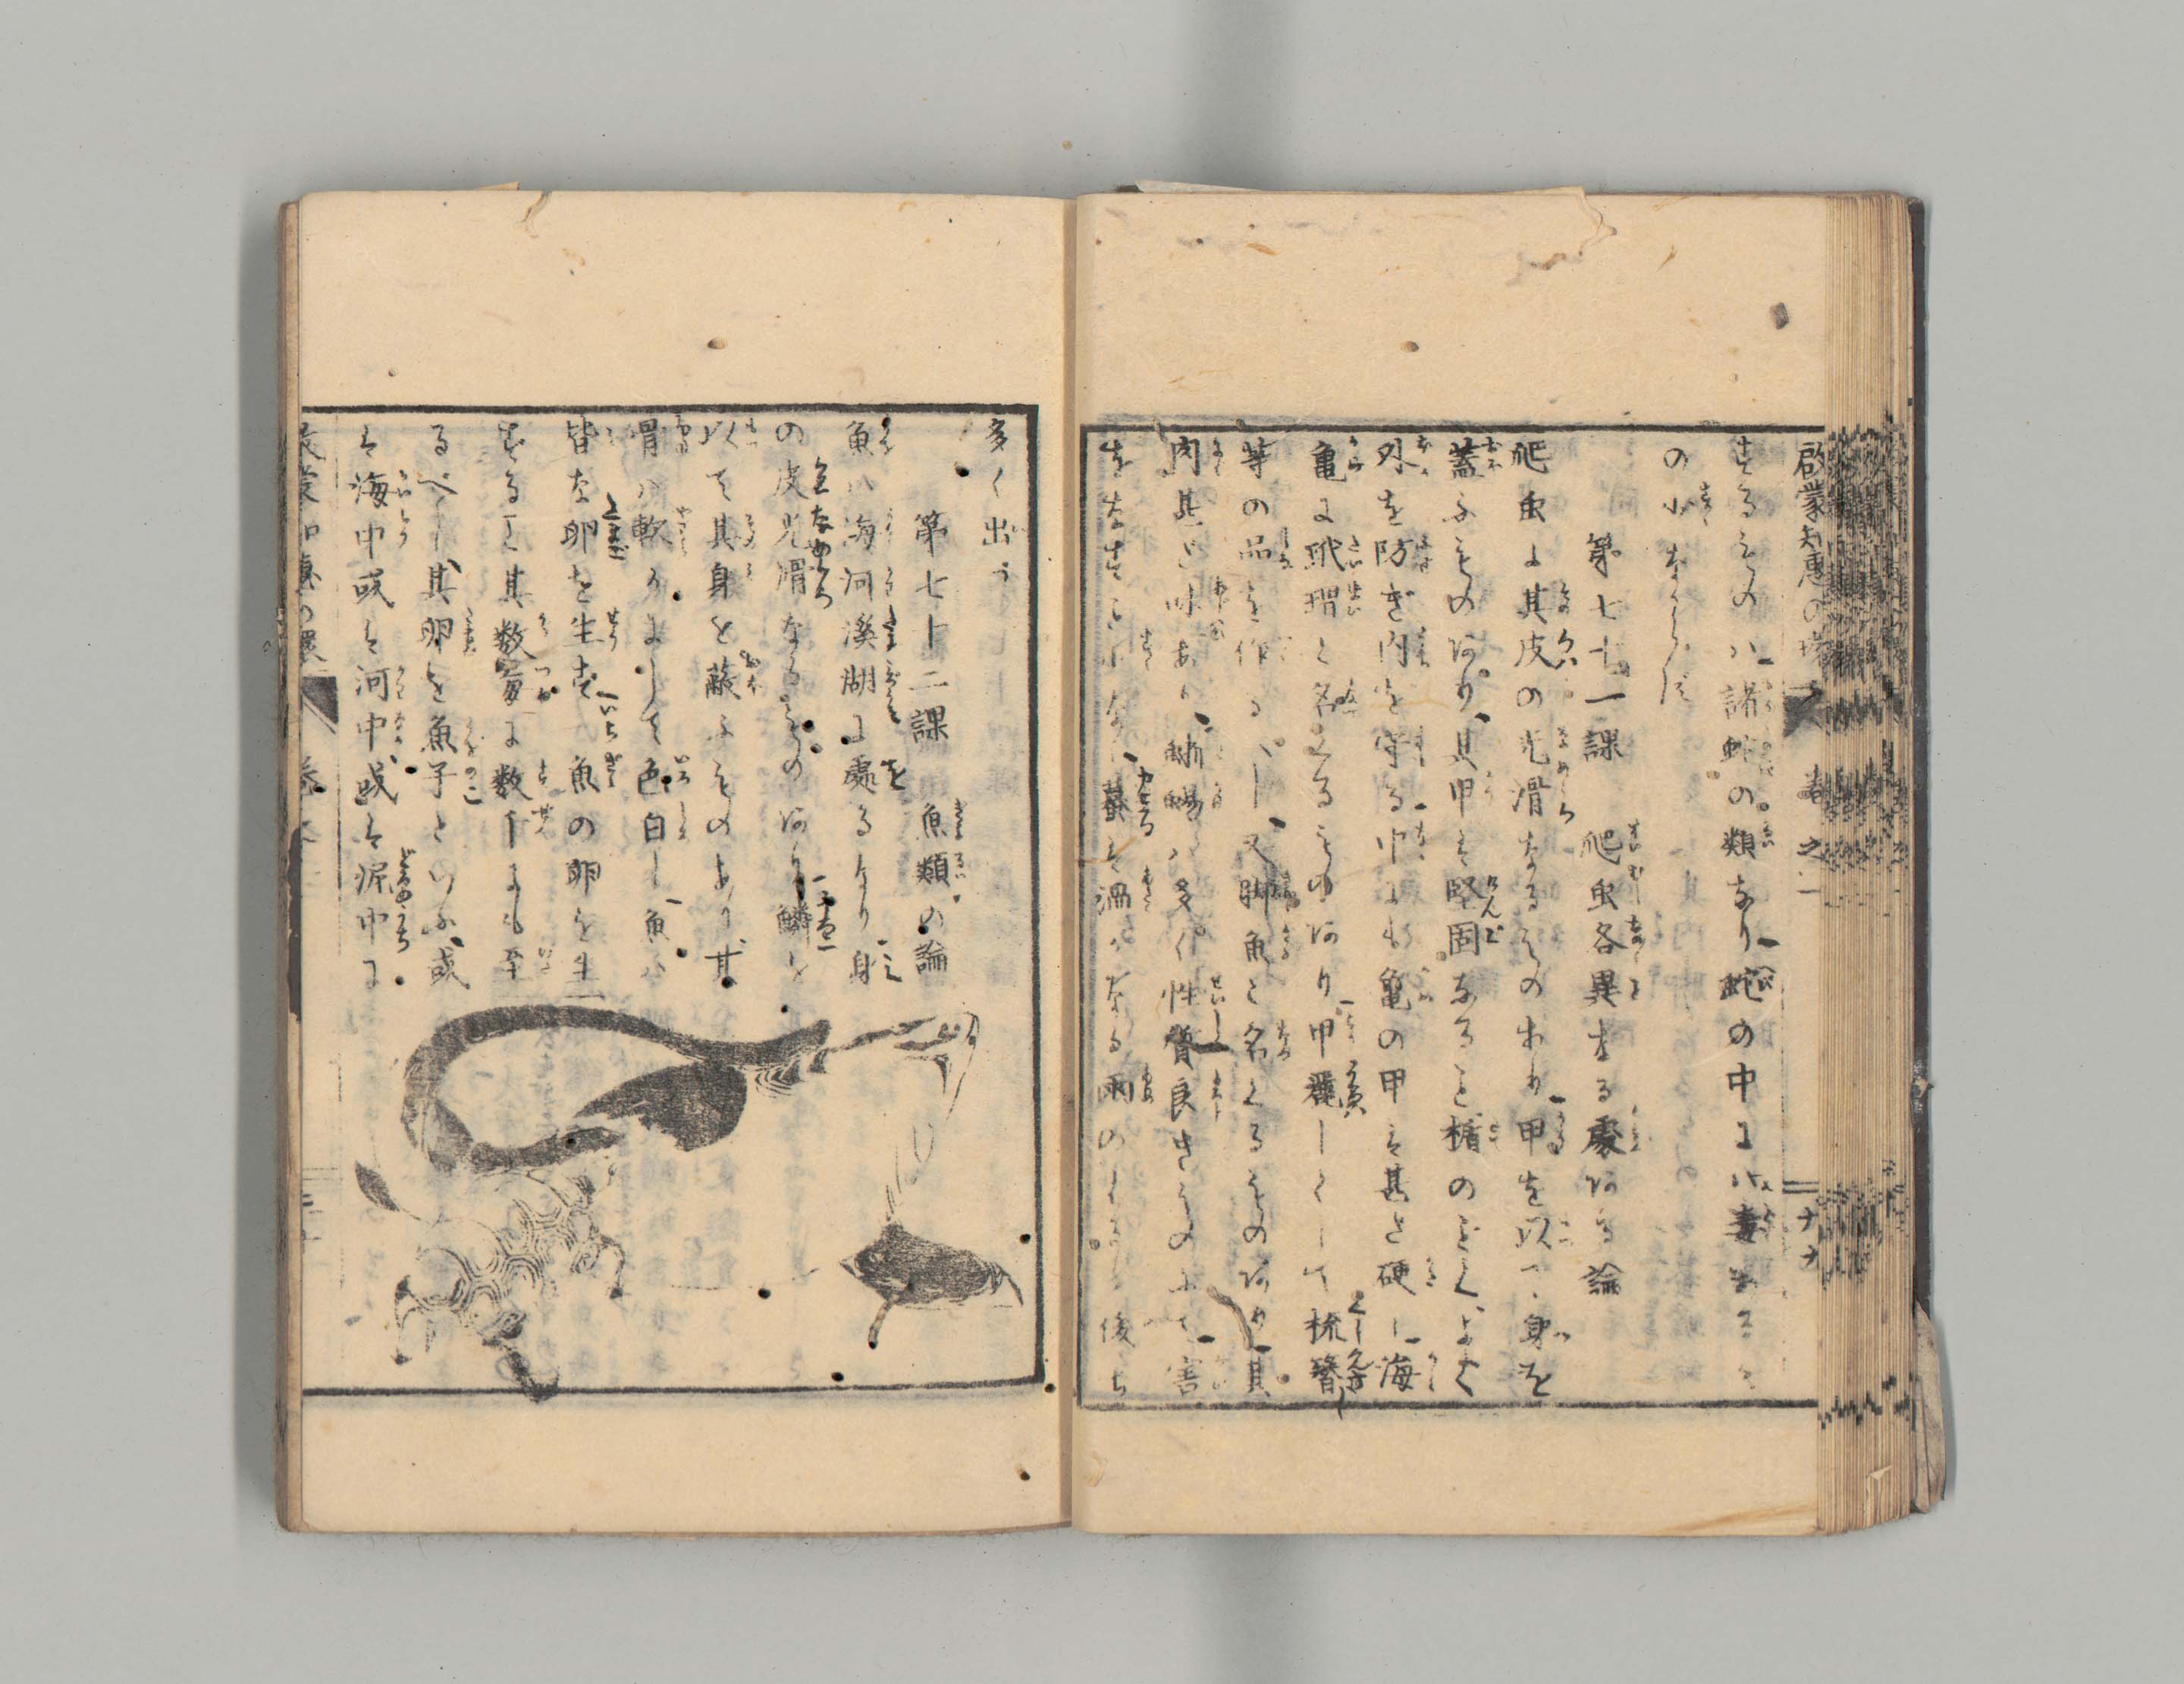 啟蒙知恵の環 巻之一
するものハ諸蛇の類なり蛇の中にハ毒あるも
の少なからず
第七十一課 爬虫各異なる處ある論
爬虫は其皮の光滑なるものあり甲を以て身を
蓋ふもの有り其甲は堅固なること楯のごとくよく
外を防ぎ内を守る中にも亀の甲は甚だ硬し海
亀に玳瑁と名くるもの有り甲麗しくして梳簪
等の品を作るべし又脚魚と名くるもの有り其
肉甚だ味あり 蜥蜴ハ多く性質良きものにて害
をなすこと少なし蟇は濕かなる雨のふりし後ち
多く出づ
第七十二課 魚類の論
魚ハ海河溪湖に處るなり身
の皮光滑なるもの有り鱗を
以て其身を蔽ふものあり其
骨ハ軟かにして色白し魚ハ
皆な卵を生ず一魚の卵を生
ずること其数毎に数千にも至
るべし其卵を魚子といふ或
は海中或は河中或は泥中に